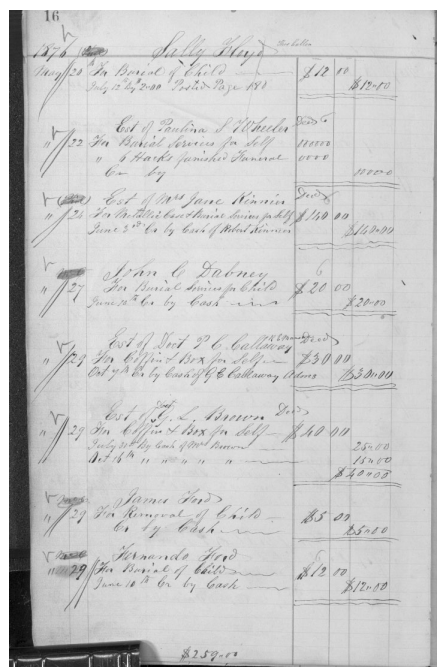 16
1876 Sally Floyd
May 20 For Burial of Child $12 00
July 12th By 2.00 Posted Page 180 $12.00
Est of Paulina S Wheeler Decd
" 22 For Burial Services for Self 0000
" 6 Hacks furnished Funeral 0000
Cr by 0000
Est of Mrs Jane Kinnier Decd
" 26 For Metallic Case & Burial Services for Self $140 00
June 3rd Cr by Cash of Robert Kinnier $140.00
John C Dabney
" 27 For Burial Services for Child $20 00
June 20th Cr by Cash $20.00
Est of Doct P C Callaway Decd
" 29 For Coffin & Box for Self $30 00
Oct 9th Cr by Cash of G E Callaway Admr $30.00
Est of G. L. Brown Decd
" 29 For Coffin & Box for Self $40 00
By Cash of Mrs Brown 25.00
Oct 16th " " " " " 15.00
$40.00
James Ford
" 29 For Removal of Child $5 00
Cr by Cash $5.00
Fernando Ford
" 29 For Burial of Child $12 00
June 10th Cr by Cash $12.00
$259.00